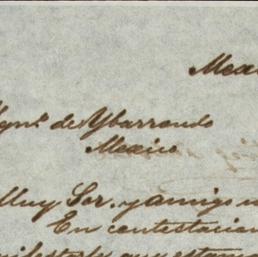 Mex
Ygn.º de Ybarrondo
Mexico
Muy Sor. y amigo
En contestacion